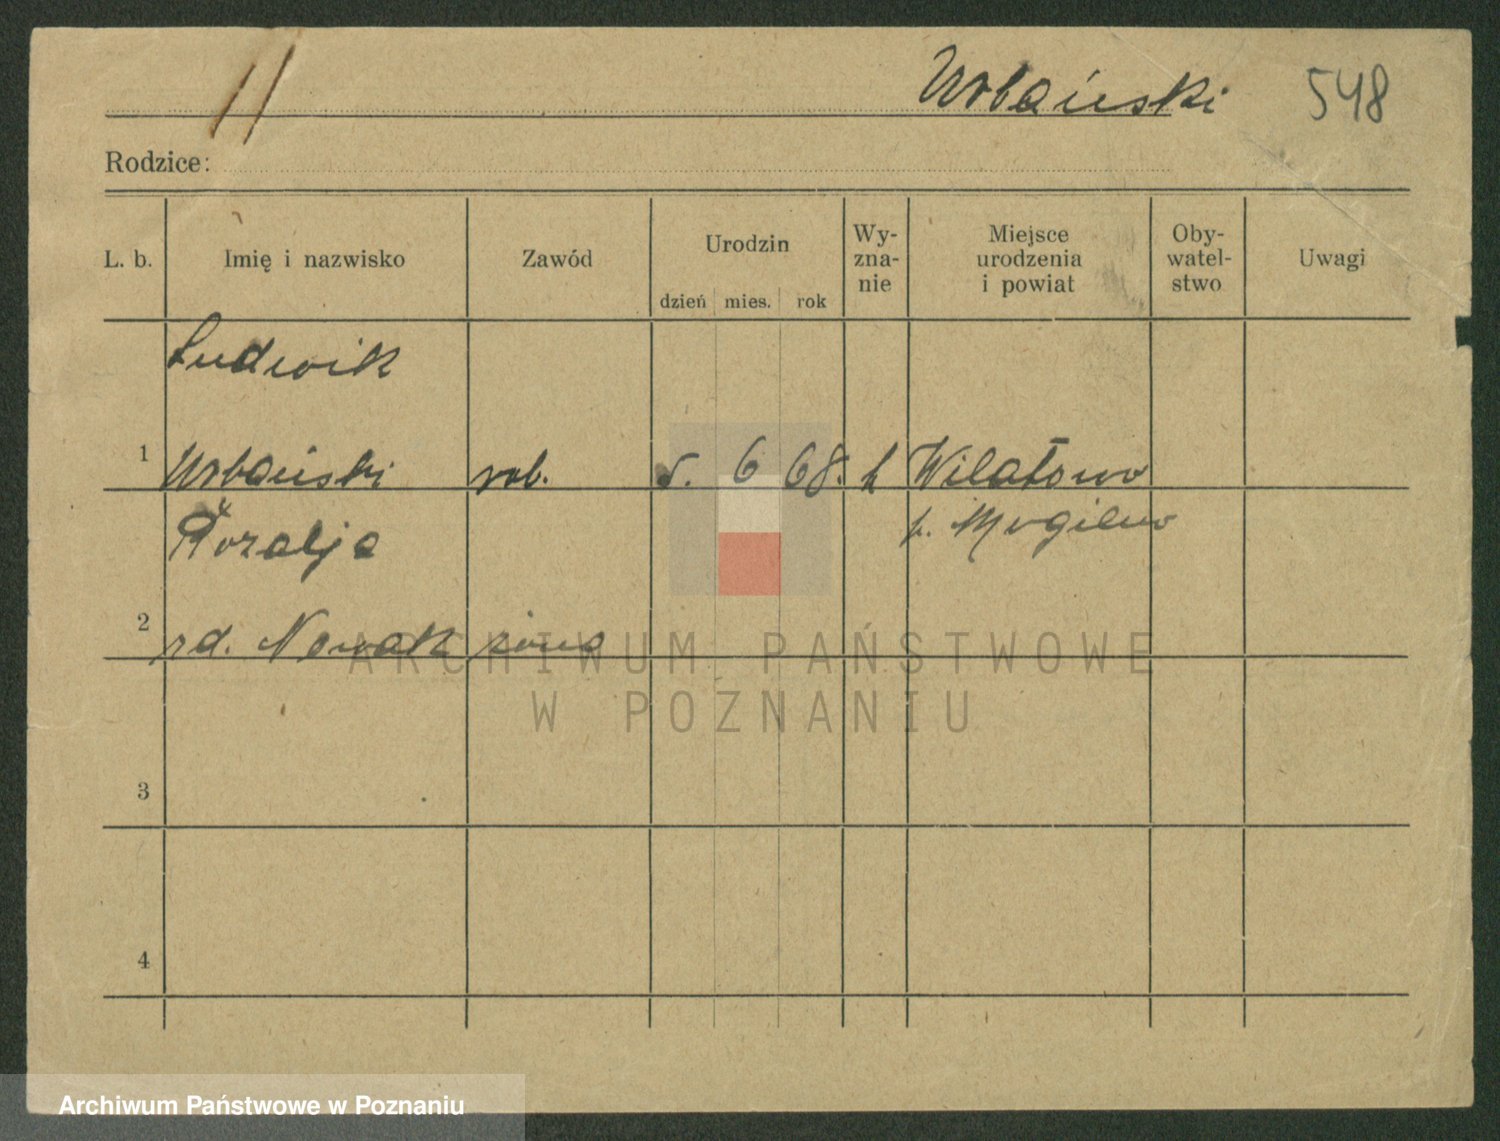 Urbański 548
Rodzice:
L. b. Imię i nazwisko Zawód Urodzin dzień mies. rok Wy-zna-nie Miejsce urodzenia i powiat Oby-watel-stwo Uwagi
Ludwik
1 Urbański rob. 6 68. k Wilatowo
p. Mogilno
Rozalja
2 rd. Nowak żona
3
4
ARCHIWUM PAŃSTWOWE
W POZNANIU
Archiwum Państwowe w Poznaniu